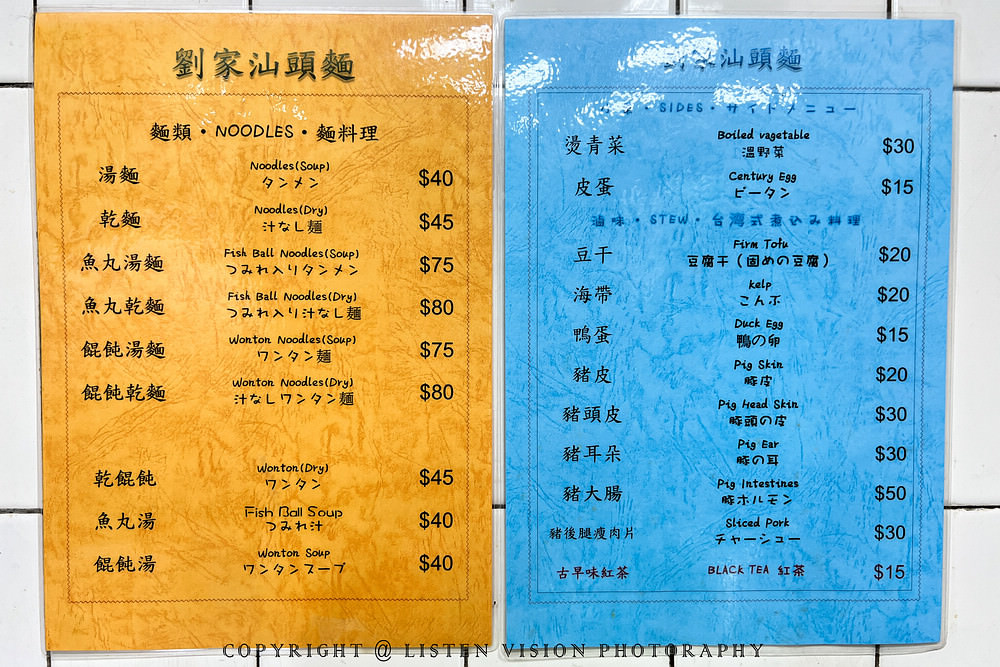 劉家汕頭麵
麵類・NOODLES・麵料理
湯麵 Noodles(Soup) タンメン $40
乾麵 Noodles(Dry) 汁なし麺 $45
魚丸湯麵 Fish Ball Noodles(Soup) つみれ入りタンメン $75
魚丸乾麵 Fish Ball Noodles(Dry) つみれ入り汁なし麺 $80
餛飩湯麵 Wonton Noodles(Soup) ワンタン麺 $75
餛飩乾麵 Wonton Noodles(Dry) 汁なしワンタン麺 $80
乾餛飩 Wonton(Dry) ワンタン $45
魚丸湯 Fish Ball Soup つみれ汁 $40
餛飩湯 Wonton Soup ワンタンスープ $40
家汕頭麵
・SIDES・サイドメニュー
燙青菜 Boiled vagetable 溫野菜 $30
皮蛋 Century Egg ピータン $15
滷味・STEW・台灣式煮込み料理
豆干 Firm Tofu 豆腐干(固めの豆腐) $20
海帶 kelp こんぶ $20
鴨蛋 Duck Egg 鴨の卵 $15
豬皮 Pig Skin 豚皮 $20
豬頭皮 Pig Head Skin 豚頭の皮 $30
豬耳朵 Pig Ear 豚の耳 $30
豬大腸 Pig Intestines 豚ホルモン $50
豬後腿瘦肉片 Sliced Pork チャーシュー $30
古早味紅茶 BLACK TEA 紅茶 $15
COPYRIGHT @ LISTEN VISION PHOTOGRAPHY